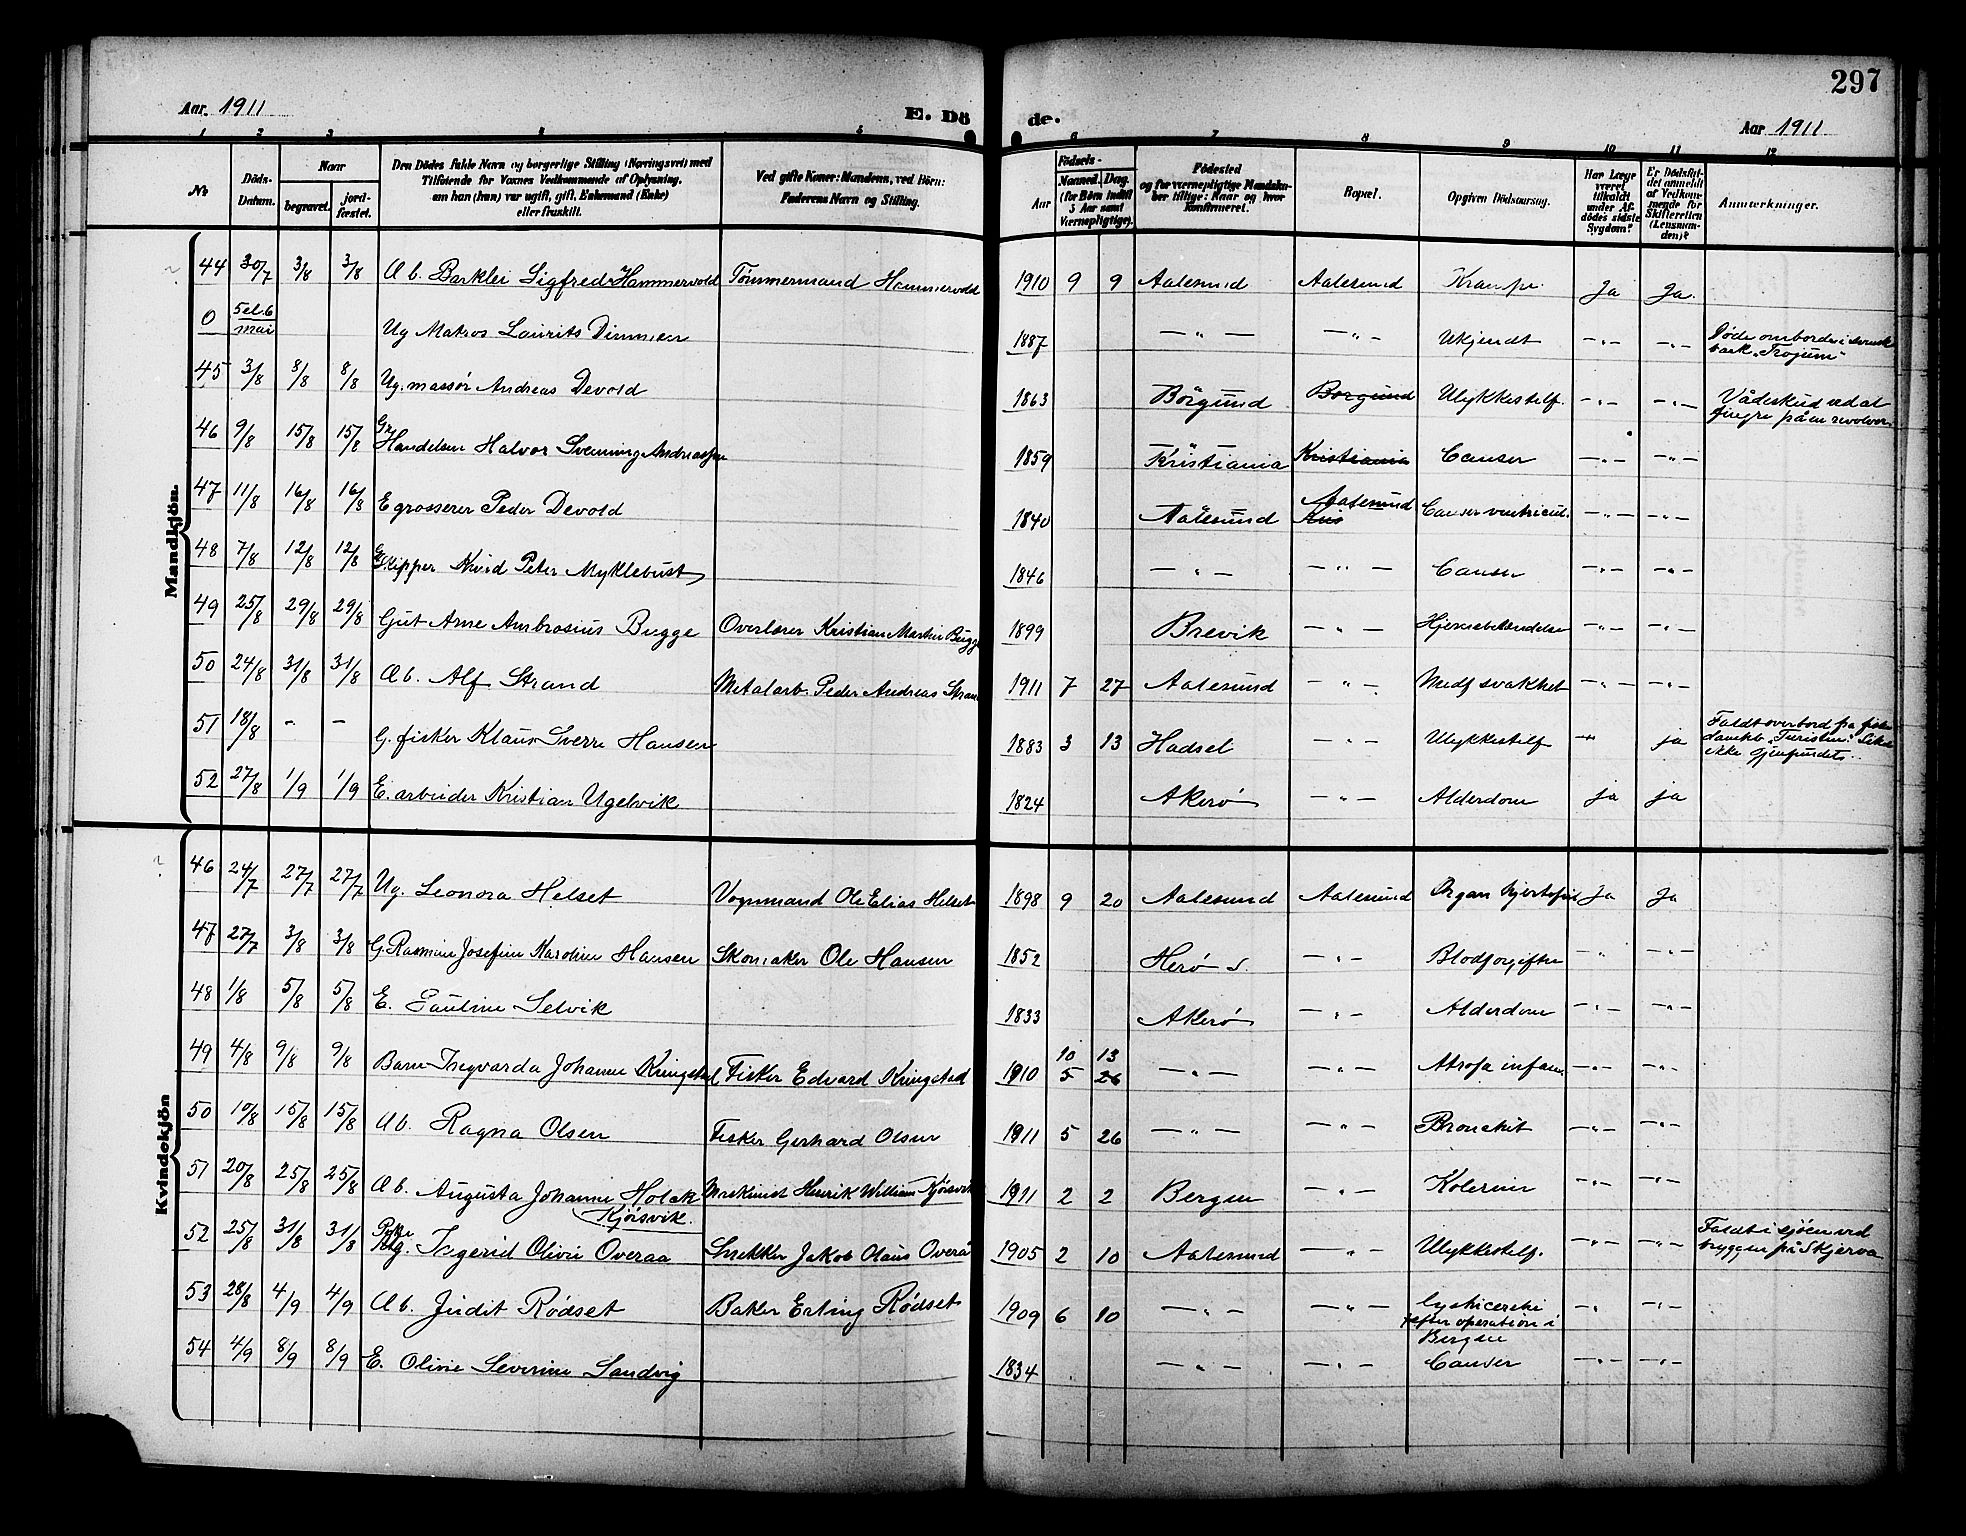 297
Aar. 1911
E. Dö de.
Aar 1911
1 2 3 4 5 6 7 8 9 10 11 12
No
Döds-Datum.
Naar
begravet.
jord-fæstet.
Den Dödes fulde Navn og borgerlige Stilling (Næringsvei) med
Tilföiende for Voxnes Vedkommende af Oplysning,
om han (hun) var ugift, gift, Enkemand (Enke)
eller fraskilt.
Ved gifte Koner: Mandens, ved Börn:
Faderens Navn og Stilling.
Födsels-
Aar
Maaned. Dag.
(for Börn indtil
5 Aar samt
Værnepligtige).
Födested
og for værnepligtige Mandska-
ber tillige: Naar og hvor
konfirmeret.
Bopæl.
Opgiven Dödsaarsag.
Har Læge
været
tilkaldt
under Af-
dödes sidste
Sygdom?
Er Dödsfal-
det anmeldt
af Vedkom-
mende for
Skifteretten
(Lensman-
den)?
Anmærkninger.
Mandkjön.
44 30/7 3/8 3/8 Ub. Barklei Sigfred Hammervold Tömmermand Hammervold 1910 9 9 Aalesund Aalesund Krampe. Ja Ja.
0 5 el. 6 mai Ug Matros Laurits Dimmen 1887 — " — — " — Ukjendt — " — — " — Döde ombord i svensk
bark „Trojum"
45 3/8 8/8 8/8 Ug. massör Andreas Devold 1863 Borgund Borgund Ulykkestilf. — " — — " — Vådeskud ved at
fingre på en revolver
46 9/8 15/8 15/8 G. Handelsm Halvor Svenning Andreassen 1859 Kristiania Kristiania Canser — " — — " —
47 11/8 16/8 16/8 E grosserer Peder Devold 1840 Aalesund Aalesund Canser ventricul. — " — — " —
48 7/8 12/8 12/8 G. Skipper Knud Peter Myklebust 1846 — " — — " — Canser — " — — " —
49 25/8 29/8 29/8 Gut Arne Ambrosius Bugge Overlærer Kristian Martin Bugge 1899 Brevik — " — Hjernebetændelse — " — — " —
50 24/8 31/8 31/8 Ub. Alf Strand Metalarb. Peder Andreas Strand 1911 7 27 Aalesund — " — Medf svakhet — " — — " —
51 18/8 - — G. fisker Klaus Sverre Hansen 1883 3 13 Hadsel — " — Ulykkestilf — " ja Faldt overbord fra fiske
dampsk. „Turisten". Liket
ikke gjenfundet.
52 27/8 1/9 1/9 E. arbeider Kristian Ugelvik 1824 Akerø — " — Alderdom ja ja
Kvindekjön
46 24/7 27/7 27/7 Ug. Leonora Helset Vognmand Ole Elias Helset 1898 9 20 Aalesund Aalesund Organ hjertefeil Ja Ja
47 27/7 3/8 3/8 G. Rasmine Josefine Karoline Hansen Skomaker Ole Hansen 1852 Herø S. — " — Blodforgiftn " — " —
48 1/8 5/8 5/8 E. Pauline Selvik 1833 Akerø — " — Alderdom — " — — " —
49 4/8 9/8 9/8 Barn Ingvarda Johanne Kringstad Fisker Edvard Kringstad 1910 10 13 5 26 — " — — " — Atrofa infan. — " — — " —
50 10/8 15/8 15/8 Ub. Ragna Olsen Fisker Gerhard Olsen 1911 5 26 — " — — " — Bronchit — " — — " —
51 20/8 25/8 25/8 Ub. Augusta Johanne Holck
Kjörsvik. Maskinist Henrik William Kjörsvik 1911 2 2 Bergen — " — Kolerine — " — — " —
52 25/8 31/8 31/8 Pike Ingerid Olivie Overaa Snekker Jakob Olaus Overå 1905 2 10 Aalesund — " — Ulykkestilf. — " — — " — Faldt i sjöen ved
bryggen på Skjerva
53 28/8 4/9 4/9 Ub. Judit Rødset Baker Erling Rødset 1909 6 10 — " — — " — Cysticerchi
efter operation i
Bergen — " — " —
54 4/9 8/9 8/9 E. Oline Severine Sandvig 1834 — " — — " — Canser — " — — " —